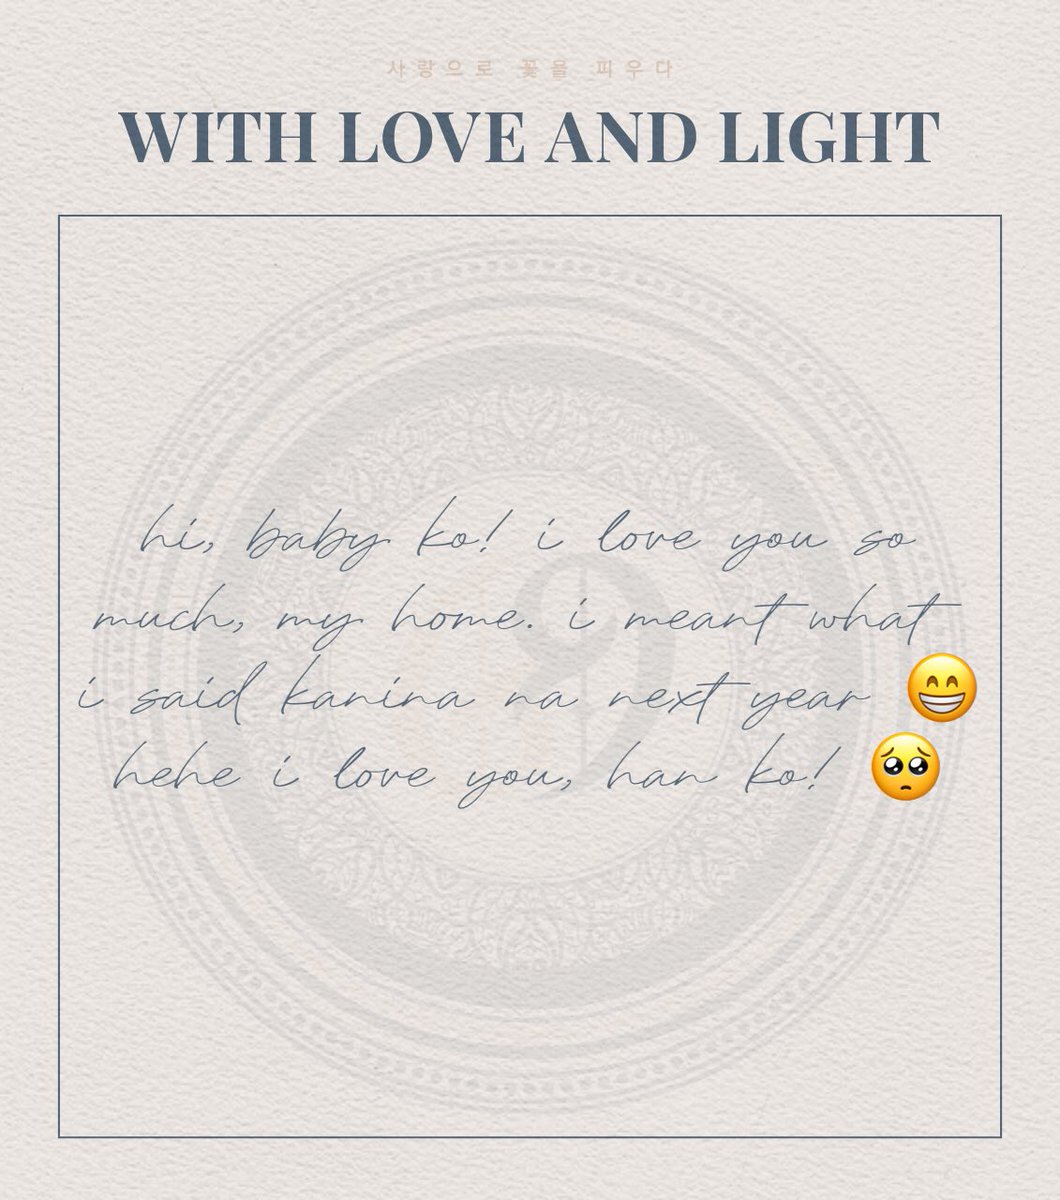 사랑으로 꽃을 피우다
WITH LOVE AND LIGHT
hi, baby ko! i love you so
much, my home. i meant what
i said kanina na next year 😁
hehe i love you, han ko! 🥺